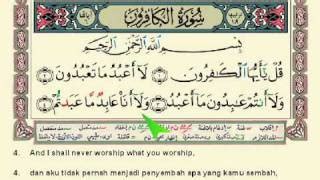 سُورَةُ الْكَافِرُونَ
بِسْمِ اللَّهِ الرَّحْمَٰنِ الرَّحِيمِ
قُلْ يَا أَيُّهَا الْكَافِرُونَ ۝ لَا أَعْبُدُ مَا تَعْبُدُونَ ۝
وَلَا أَنتُمْ عَابِدُونَ مَا أَعْبُدُ ۝ وَلَا أَنَا عَابِدٌ مَّا عَبَدتُّمْ
4. And I shall never worship what you worship,
4. dan aku tidak pernah menjadi penyembah apa yang kamu sembah,